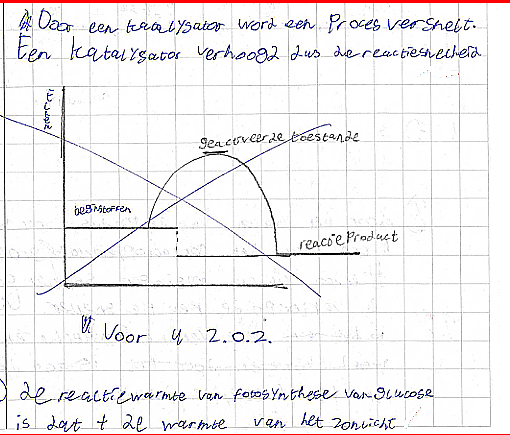 Door een kaalysator word een Proces versnelt.
Een katalysator verhoogd dus de reactiesnelheid
geactiveerde toestande
beginstoffen
reactie Product
Voor 2.0.2.
de reactiewarmte van fotosynthese van glucose
is dat + de warmte van het zonlicht